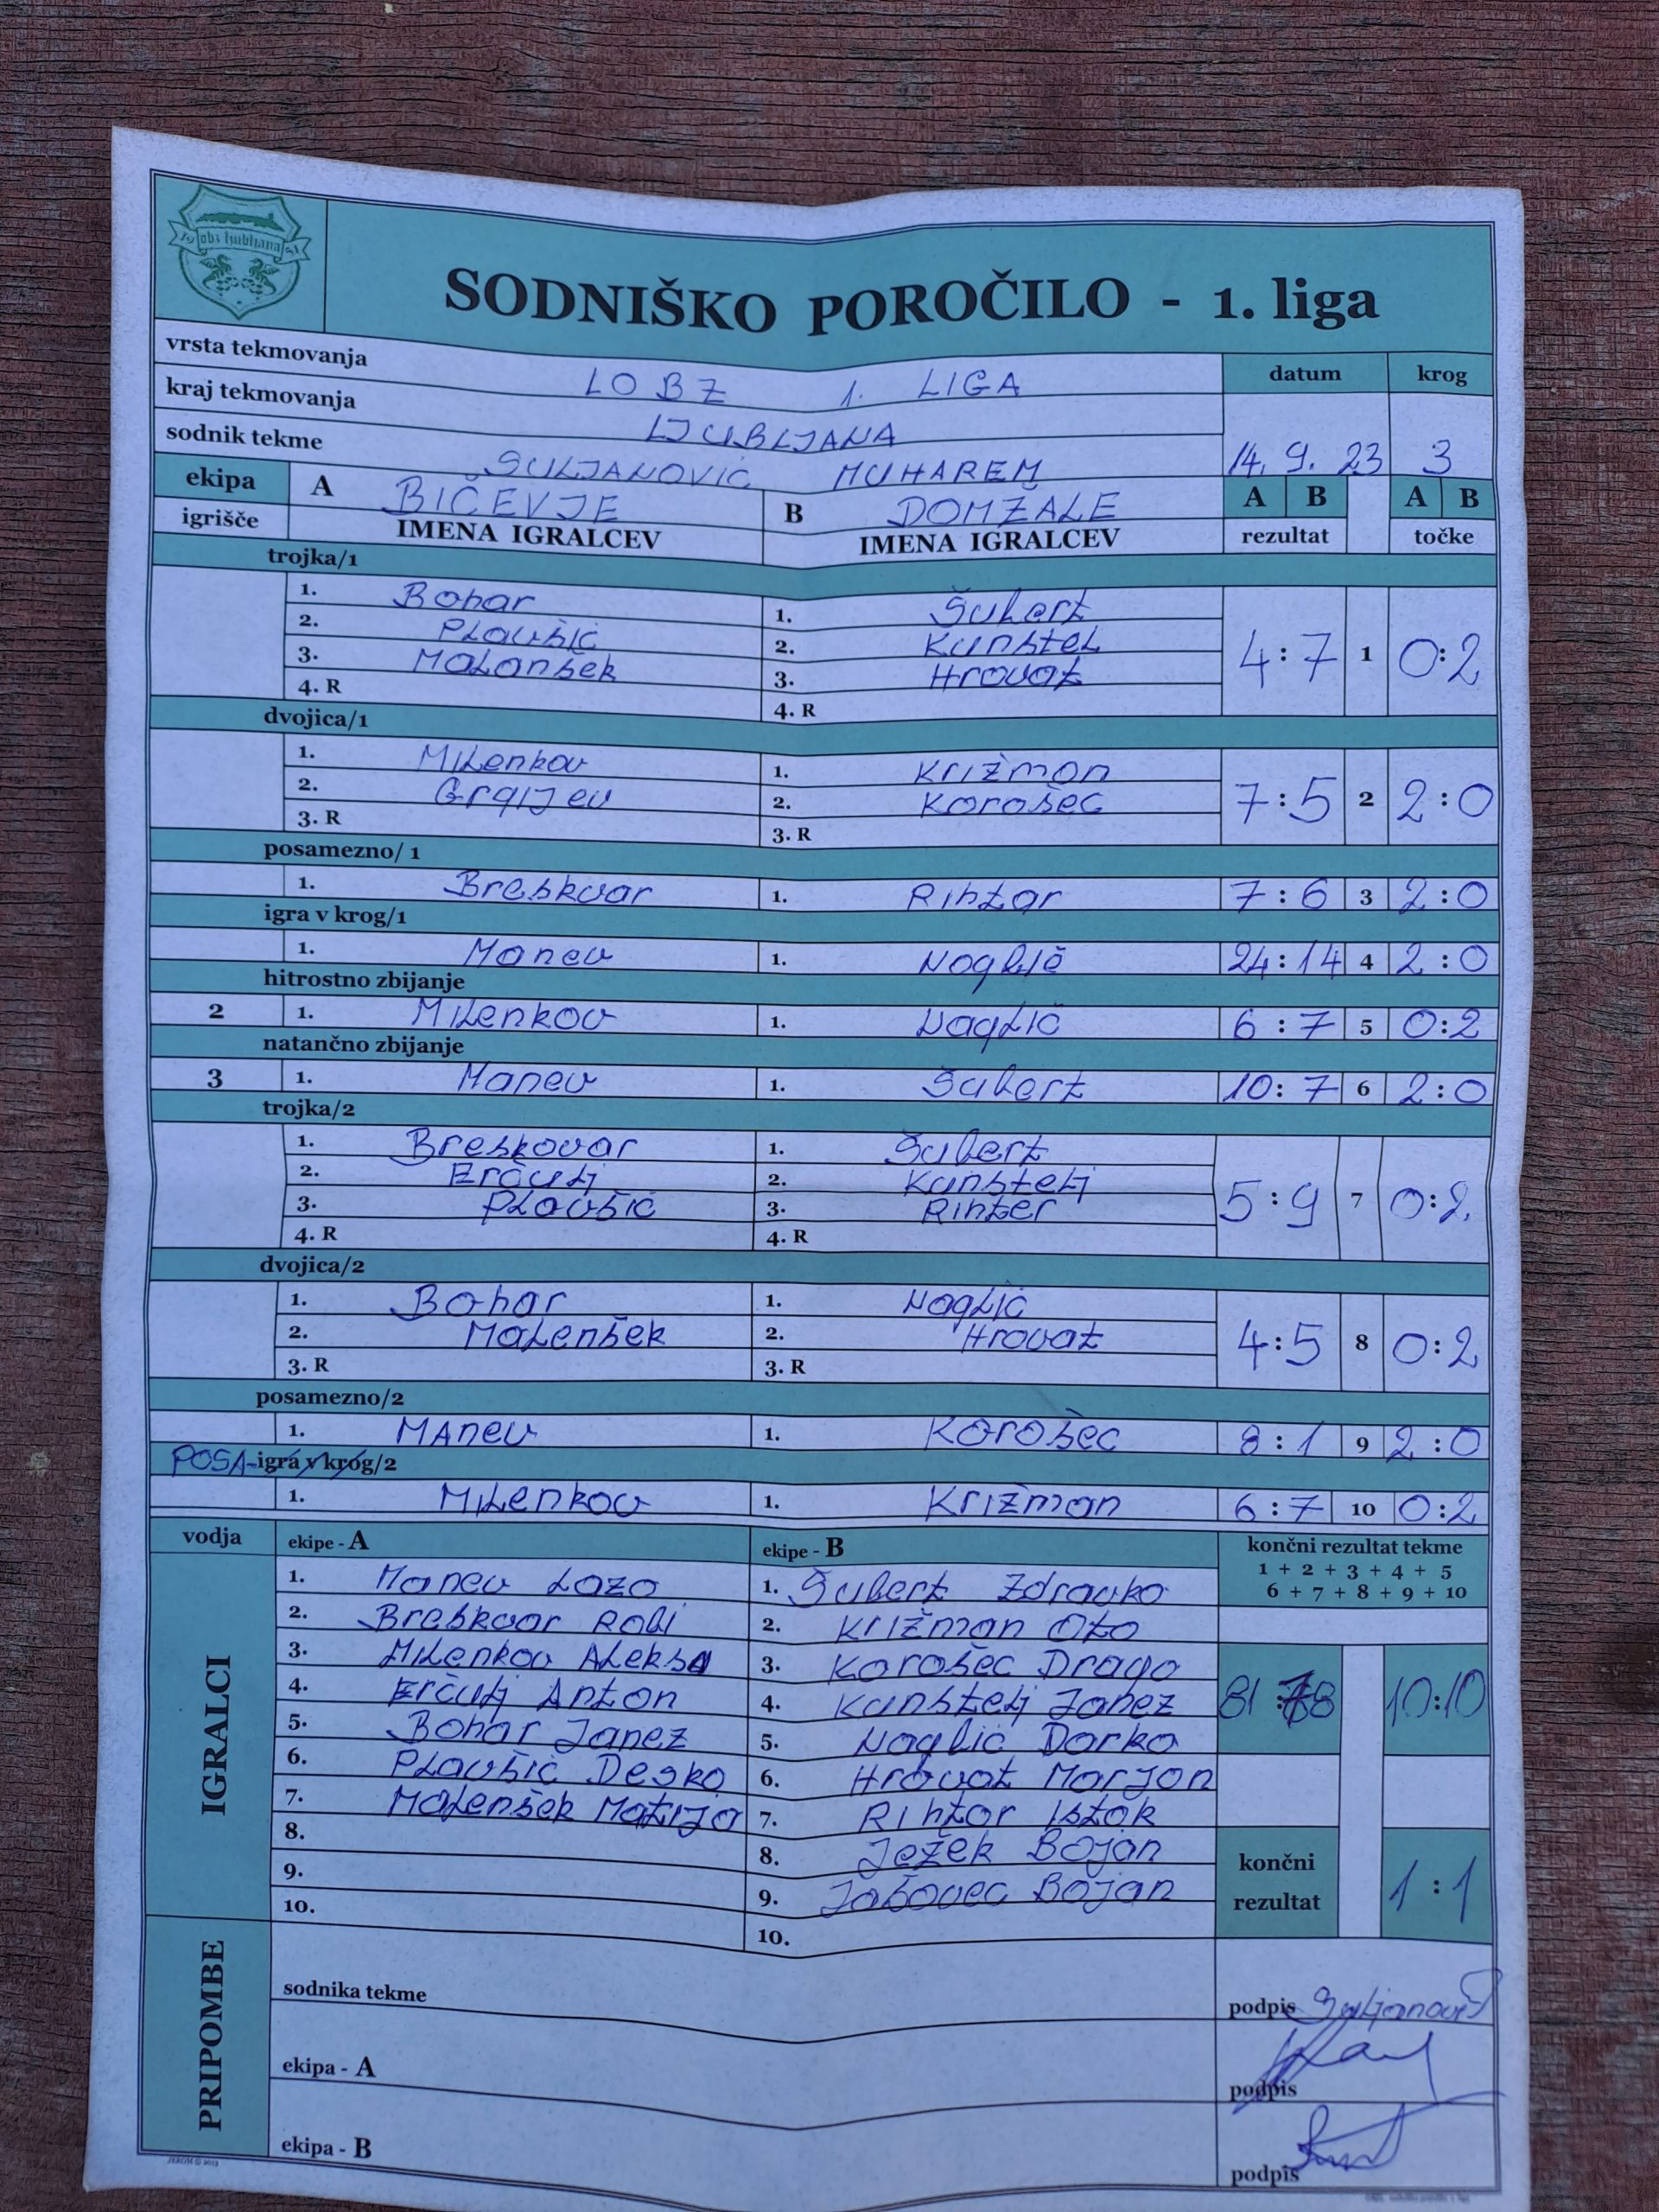 obz ljubljana
SODNIŠKO POROČILO - 1. liga
vrsta tekmovanja LOBZ 1. LIGA datum krog
kraj tekmovanja LJUBLJANA
sodnik tekme SULJANOVIĆ MUHAREM 14. 9. 23 3
ekipa A BIČEVJE B DOMŽALE A B A B
igrišče IMENA IGRALCEV IMENA IGRALCEV rezultat točke
trojka/1
1. Bohar 1. Šubert
2. Plavšić 2. Kunstel
3. Malanšek 3. Hrovat 4:7 1 0:2
4. R 4. R
dvojica/1
1. Milenkov 1. Križman
2. Grgijev 2. Korošec 7:5 2 2:0
3. R 3. R
posamezno/ 1
1. Breskvar 1. Rihtar 7:6 3 2:0
igra v krog/1
1. Manev 1. Noglič 24:14 4 2:0
hitrostno zbijanje
2 1. Milenkov 1. Naglič 6:7 5 0:2
natančno zbijanje
3 1. Manev 1. Šubert 10:7 6 2:0
trojka/2
1. Breskovar 1. Šubert
2. Erčulj 2. Kunštelj
3. Plavšić 3. Rihter 5:9 7 0:2.
4. R 4. R
dvojica/2
1. Bohar 1. Noglič
2. Malenšek 2. Hrovat 4:5 8 0:2
3. R 3. R
posamezno/2
1. MAnev 1. Korošec 8:1 9 2:0
POSA-igra v krog/2
1. Milenkov 1. Križman 6:7 10 0:2
vodja ekipe - A ekipe - B končni rezultat tekme
1 + 2 + 3 + 4 + 5
6 + 7 + 8 + 9 + 10
IGRALCI
1. Manev Lazo 1. Šubert Zdravko
2. Breskvar Robi 2. Križman Oto
3. Milenkov Aleksa 3. Korošec Drago
4. Erčulj Anton 4. Kunštelj Janez 81:68 10:10
5. Bohar Janez 5. Naglič Darko
6. Plavšić Desko 6. Hrovat Marjan
7. Malenšek Matija 7. Rihtar Iztok
8. 8. Ježek Bojan končni
9. 9. Jašovec Bojan rezultat 1:1
10. 10.
PRIPOMBE
sodnika tekme podpis Suljanović
ekipa - A podpis
ekipa - B podpis
JEROM © 2013